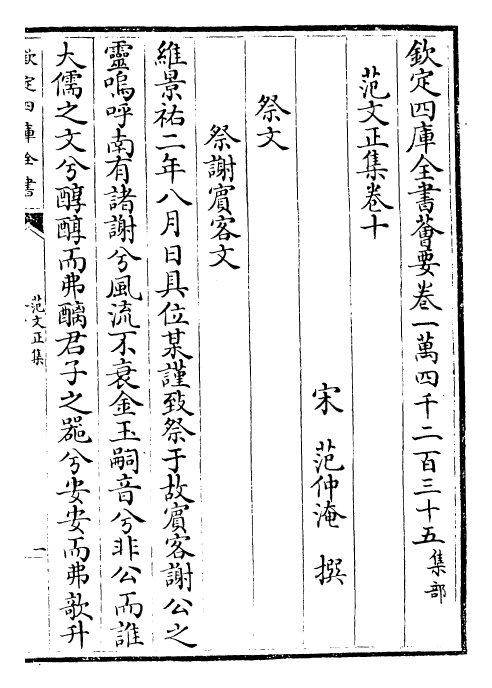 欽定四庫全書薈要卷一萬四千二百三十五集部
范文正集卷十
宋 范仲淹 撰
祭文
祭謝賓客文
維景祐二年八月日具位某謹致祭于故賓客謝公之
靈嗚呼南有諸謝兮風流不衰金玉嗣音兮非公而誰
大儒之文兮醇醇而弗醨君子之器兮安安而弗欹升
欽定四庫全書
范文正集
一